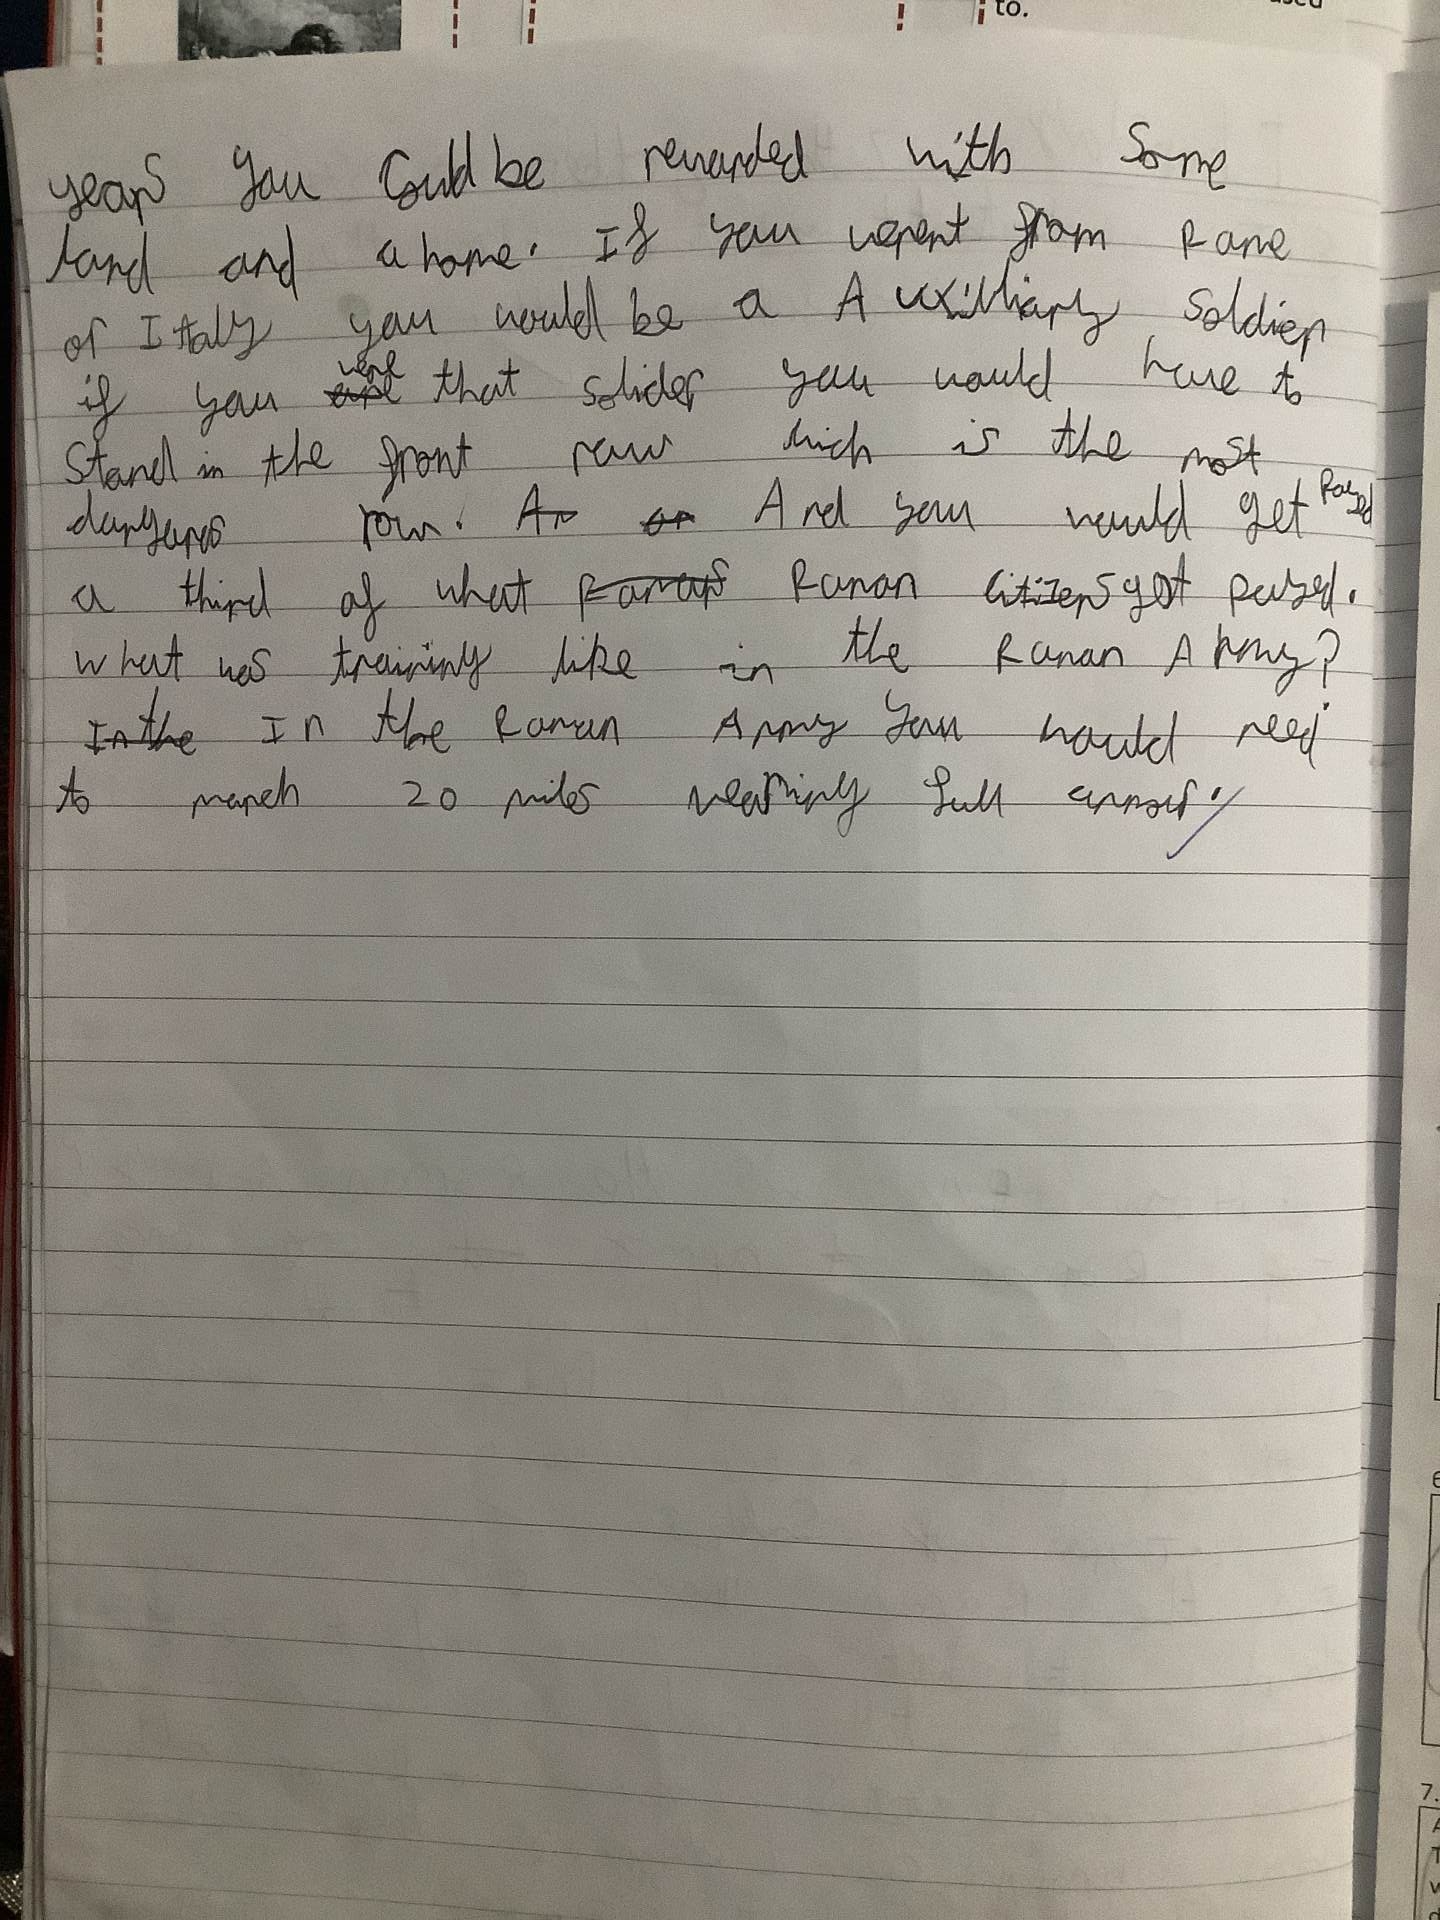 to.
years you Could be rewarded with some
land and a home. If you werent from Rome
or Italy you would be a Auxilliary soldier
if you were that solider you would have to
Stand in the front row which is the most
dangeros row. An or And you would get Payed
a third of what Romans Roman citizens got payed.
What was training like in the Roman Army?
In the In the Roman Army you would need
to march 20 miles wearing full armour.
7.